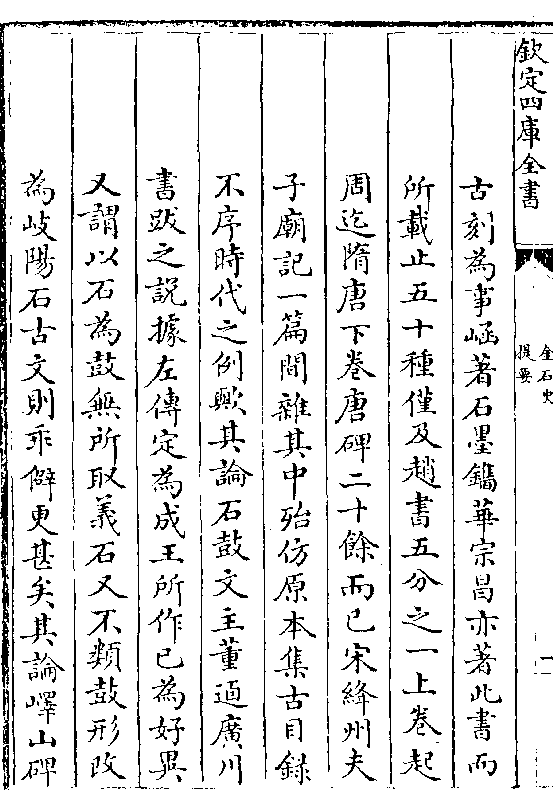 欽定四庫全書
金石史
提要
一
古刻為事崡著石墨鐫華宗昌亦著此書而
所載止五十種僅及趙書五分之一上卷起
周迄隋唐下卷唐碑二十餘而已宋絳州夫
子廟記一篇間雜其中殆仿原本集古目録
不序時代之例歟其論石鼓文主董逌廣川
書跋之説據左傳定為成王所作已為好異
又謂以石為鼓無所取義石又不類鼓形改
為岐陽石古文則乖僻更甚矣其論嶧山碑